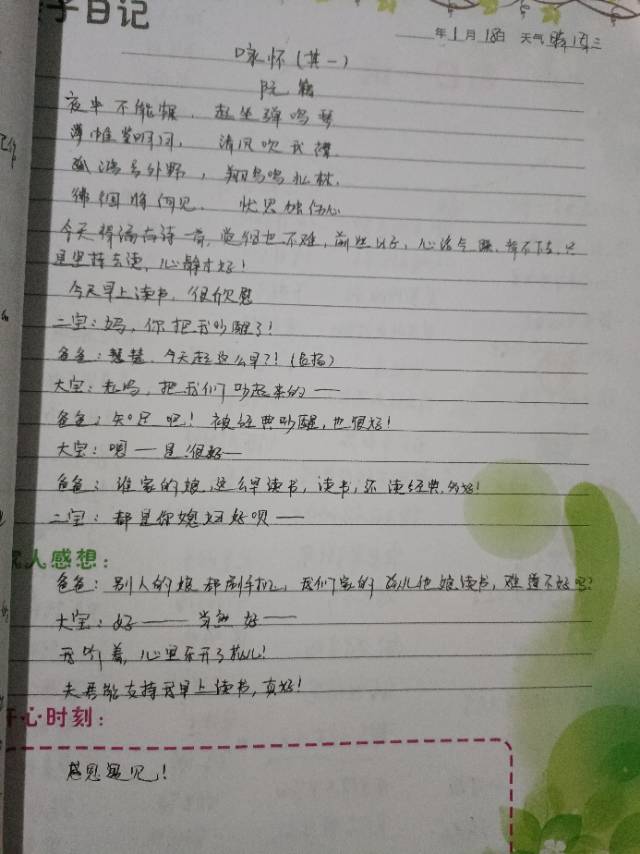 子日记
年1月18日 天气 晴 周三
咏怀(其一)
阮籍
夜中不能寐，起坐弹鸣琴
薄帷鉴明月，清风吹我襟.
孤鸿号外野，翔鸟鸣北林.
徘徊将何见，忧思独伤心
今天得诵古诗一首，觉得也不难，前些日子，心浮气躁，静不下去，只
是坚持去读，心静才好！
今天早上读书，很欣慰
二宝：妈，你把我吵醒了！
爸爸：慧慧，今天起这么早？！
大宝：老妈，把我们吵起来的——
爸爸：知足吧！被经典吵醒，也很好！
大宝：嗯——是！很好—
爸爸：谁家的娘，这么早读书，读书，还读经典，多好！
二宝：都是你媳妇好呗——
人感想：
爸爸：别人的娘都刷手机，我们家的孩儿他娘读书，难道不好吗？
大宝：好——— 当然好——
我听着，心里乐开了花儿！
夫君能支持我早上读书，真好！
开心时刻：
感恩遇见！